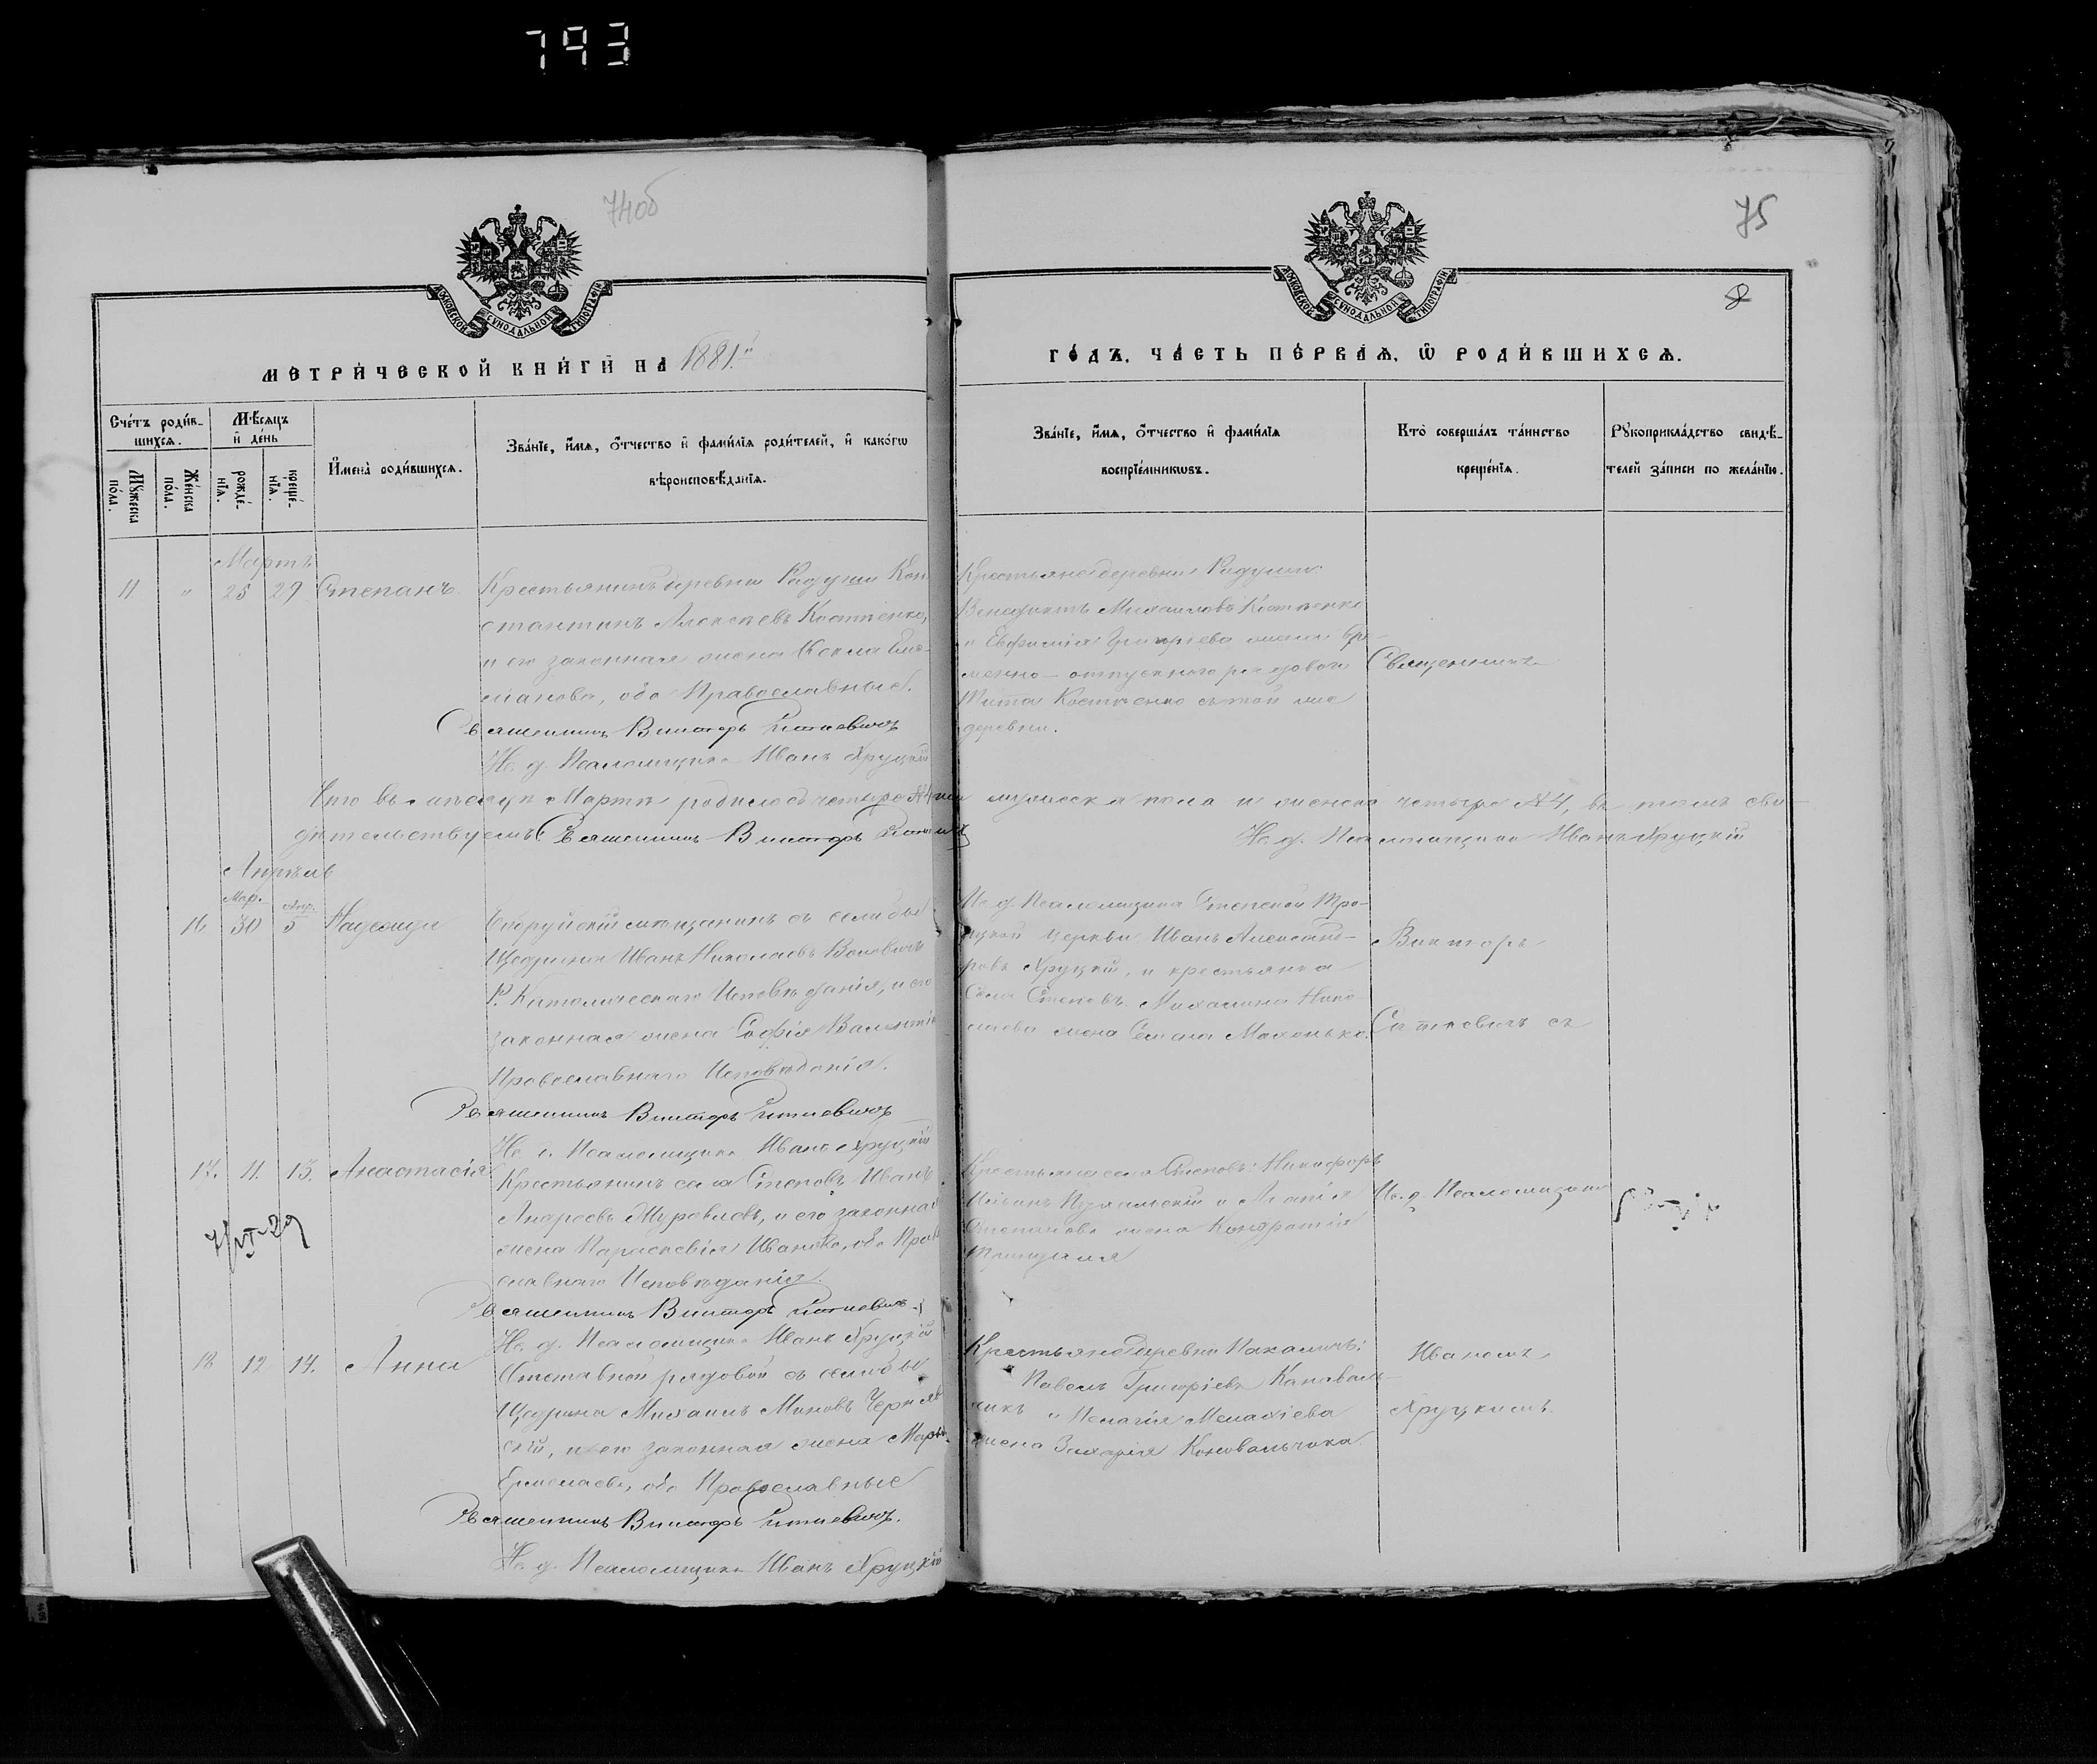 793
74об
75
8
МОСКОВСКОЙ СУНОДАЛЬНОЙ ТИПОГРАФІИ
МОСКОВСКОЙ СУНОДАЛЬНОЙ ТИПОГРАФІИ
МЕТРИЧЕСКОЙ КНИГИ НА 1881.й
ГОДЪ, ЧАСТЬ ПЕРВАЯ, Ѿ РОДИВШИХСЯ.
Счетъ родив-
шихся.
Мужеска пола.
Женска пола.
Мѣсяцъ
и день
рожде-
нія.
креще-
нія.
Имена родившихся.
Званіе, имя, отчество и фамилія родителей, и какогѡ
вѣроисповѣданія.
Званіе, имя, отчество и фамилія
воспріемниковъ.
Кто совершалъ таинство
крещенія.
Рукоприкладство свидѣ-
телей записи по желанію.
Мартъ
11 " 25 29 Степанъ
Крестьянинъ деревни Радуши Кон
стантинъ Алексеевъ Костенко,
и его законная жена
оба Православные.
Священникъ Викторъ Ситкевичъ
И. д. Псаломщика Иванъ Хруцкій
Крестьяне деревни Радуши:
Венедиктъ Михаиловъ Костенко
и Евфимія Григорьева жена вре-
менно-отпускного рядового
Тита Костенко съ той же
деревни.
Священникъ
Что въ мѣсяцѣ Мартѣ родилось четыре №4
мужеска пола и женска четыре №4, въ томъ сви-
дѣтельствуемъ: Священникъ Викторъ Ситкевичъ
И. д. Псаломщика Иванъ Хруцкій
Апрѣль
Мар. Апр.
16 30 5 Надежда
Бобруйскій мѣщанинъ съ селибы
Щедрина Иванъ Николаевъ Воловичъ
Р. Католическаго Исповѣданія, и его
законная жена Софія
Православнаго Исповѣданія.
Священникъ Викторъ Ситкевичъ
И. д. Псаломщика Иванъ Хруцкій
И. д. Псаломщика Степской Тро-
ицкой церкви Иванъ Александ-
ровъ Хруцкій, и крестьянка
Села Степовъ Михалина Нико
лаева жена Семена
Викторъ
Ситкевичъ съ
17. 11. 13. Анастасія
Крестьянинъ села Степовъ Иванъ
Андреевъ Муравлевъ, и его законная
жена Параскевія Иванова, оба Право
славнаго Исповѣданія.
Священникъ Викторъ Ситкевичъ
И. д. Псаломщика Иванъ Хруцкій
Крестьяне села Степовъ: Никифоръ
и Агапія
Степанова жена Кондратія
И. д. Псаломщика
18 12 14. Анна
Отставной рядовой съ селибы
Щедрина Михаилъ Миновъ Черняв
скій, и его законная жена Марья
Ермолаева, оба Православные
Священникъ Викторъ Ситкевичъ.
И. д. Псаломщика Иванъ Хруцкій
Крестьяне деревни
Павелъ Григоріевъ Коноваль-
чикъ и Пелагія Мелахіева
жена Захарія Коновальчика
Иваномъ
Хруцкимъ.